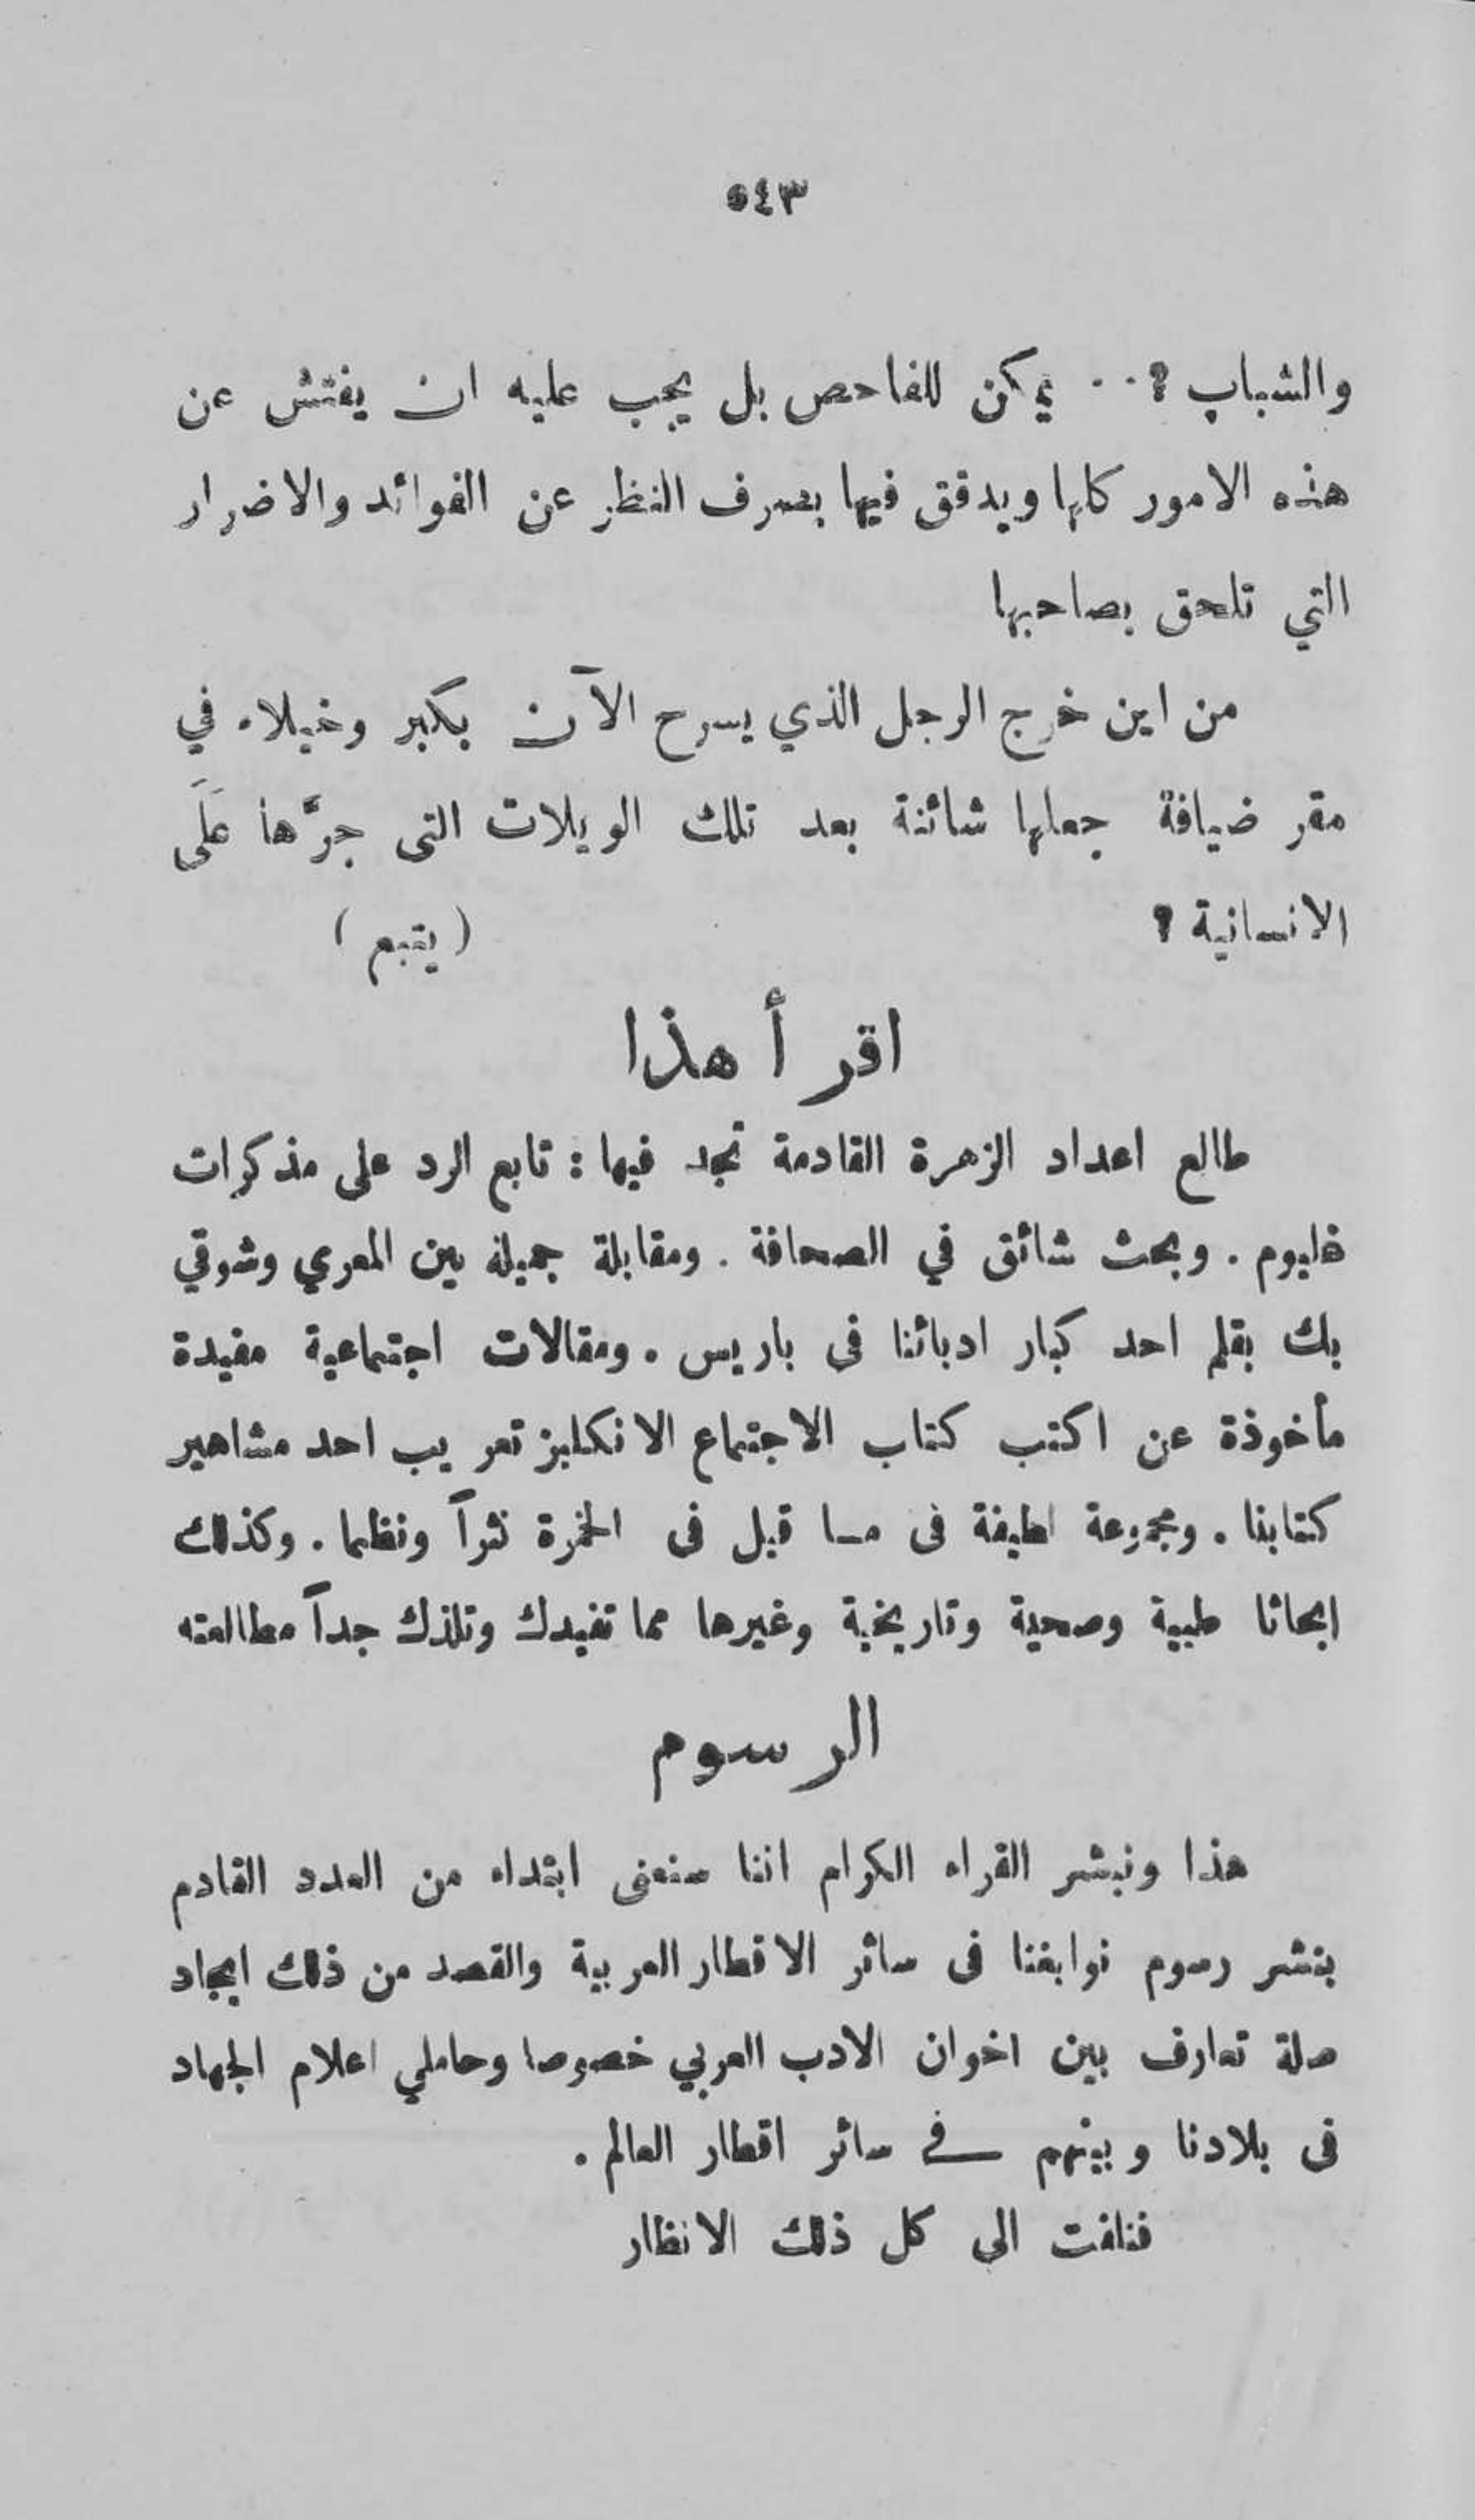 ٥٤٣
والشباب ؟ ٠٠ يمكن للفاحص بل يجب عليه ان يفتش عن
هذه الامور كلها ويدقق فيها بصرف النظر عن الفوائد والاضرار
التي تلحق بصاحبها
من اين خرج الرجل الذي يسرح الآن بكبر وخيلاء في
مقر ضيافة جعلها شائنة بعد تلك الويلات التى جرَّها عَلَى
الانسانية ؟ ( يتبع )
اقرأ هذا
طالع اعداد الزهرة القادمة تجد فيها : تابع الرد على مذكرات
غليوم . وبحث شائق في الصحافة . ومقابلة جميلة بين المعري وشوقي
بك بقلم احد كبار ادبائنا فى باريس . ومقالات اجتماعية مفيدة
مأخوذة عن اكتب كتاب الاجتماع الانكليز تعريب احد مشاهير
كتابنا . ومجموعة لطيفة فى مـا قيل فى الخمرة نثراً ونظما . وكذلك
ابحاثا طبية وصحية وتاريخية وغيرها مما تفيدك وتلذك جداً مطالعته
الرسوم
هذا ونبشر القراء الكرام اننا سنعنى ابتداء من العدد القادم
بنشر رسوم نوابغنا فى سائر الاقطار العربية والقصد من ذلك ايجاد
صلة تعارف بين اخوان الادب العربي خصوصا وحاملي اعلام الجهاد
فى بلادنا وبينهم في سائر اقطار العالم .
فنلفت الى كل ذلك الانظار